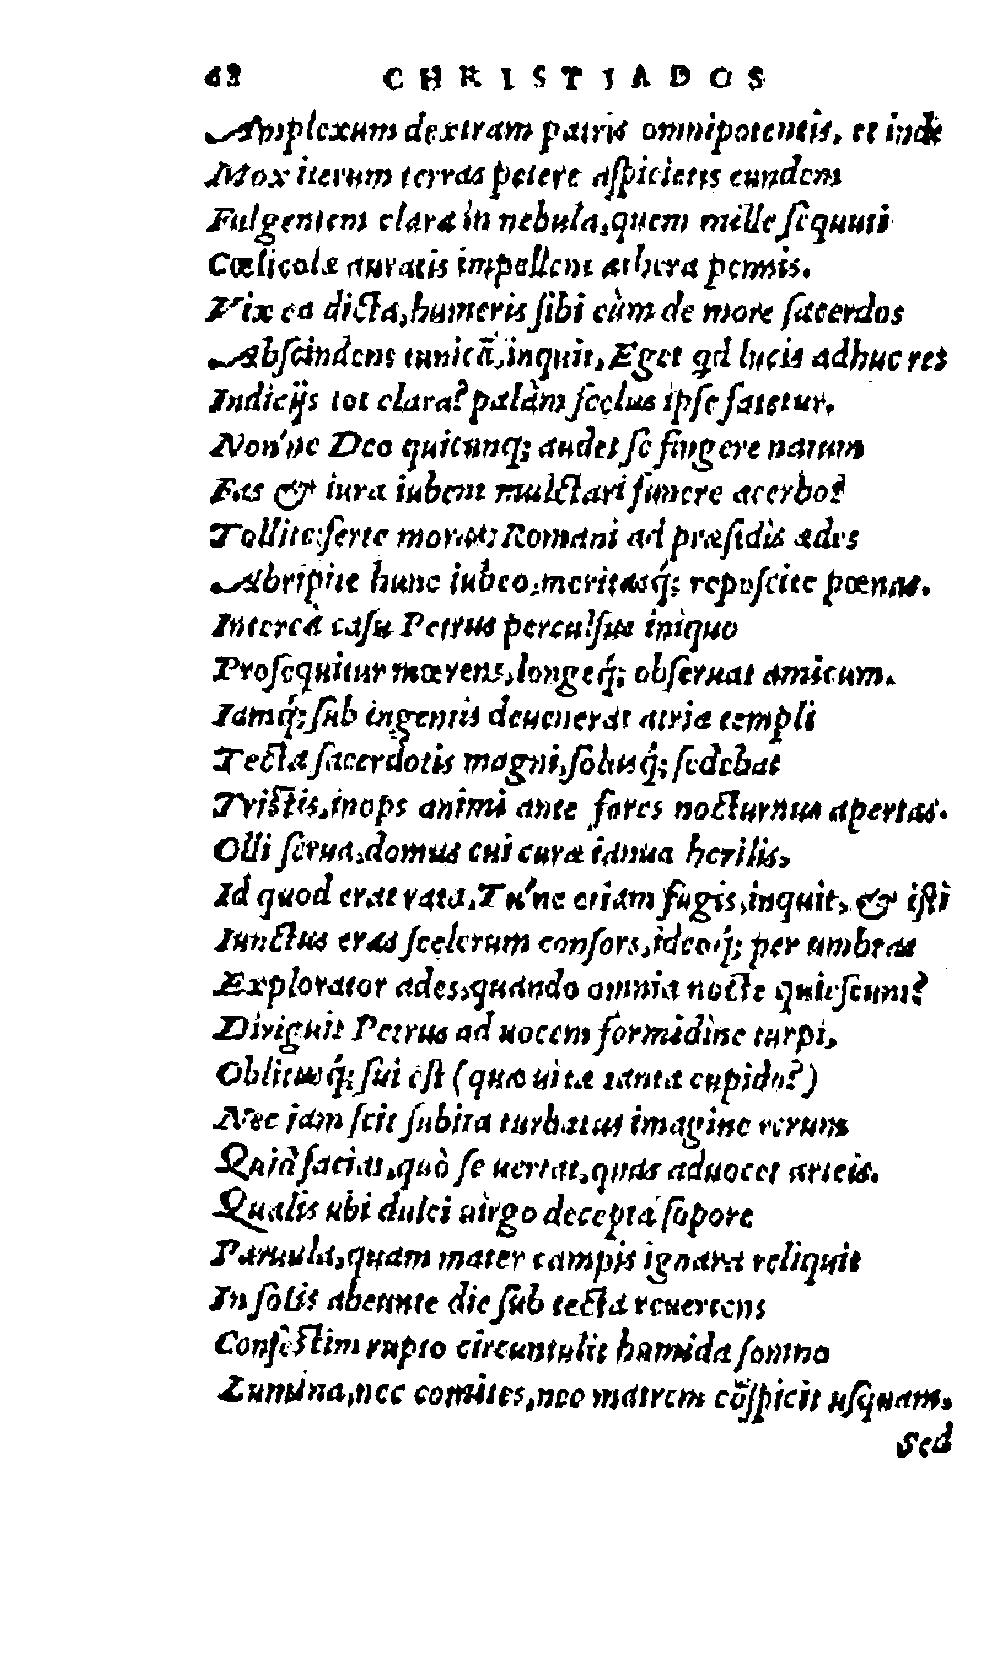 68 CHRISTIADOS
Amplexum dextram patris omnipotentis, et inde
Mox iterum terras petere aſpicietis eundem
Fulgentem clara in nebula, quem mille ſequuti
Cœlicolæ auratis impellent æthera pennis.
Vix ea dicta, humeris ſibi cùm de more ſacerdos
Abſcindens tunicā, inquit, Eget qd lucis adhuc res
Indicijs tot clara? palàm ſcelus ipſe fatetur.
Non'ne Deo quicunq; audet ſe fingere natum
Fas & iura iubent mulctari funere acerbo?
Tollite: ferte moras: Romani ad præſidis ædes
Abripite hunc iubeo, meritasq́; repoſcite pœnas.
Intereà caſu Petrus perculſus iniquo
Proſequitur mœrens, longeq́; obſeruat amicum.
Iamq́; ſub ingentis deuenerat atria templi
Tecta ſacerdotis magni, ſolusq́; ſedebat
Triſtis, inops animi ante fores nocturnus apertas.
Olli ſerua, domus cui curæ ianua herilis,
Id quod erat rata, Tu'ne etiam fugis, inquit, & iſti
Iunctus eras ſcelerum conſors, ideoq́; per umbras
Explorator ades, quando omnia nocte quieſcunt?
Diriguit Petrus ad uocem formidine turpi,
Oblitusq́; ſui eſt (quæ uitæ tanta cupido?)
Nec iam ſcit ſubita turbatus imagine rerum
Quid faciat, quò ſe uertat, quas aduocet arteis.
Qualis ubi dulci uirgo decepta ſopore
Paruula, quam mater campis ignara reliquit
In ſolis abeunte die ſub tecta reuertens
Confeſtim rupto circuntulit humida ſomno
Lumina, nec comites, nec matrem cōſpicit uſquam.
Sed